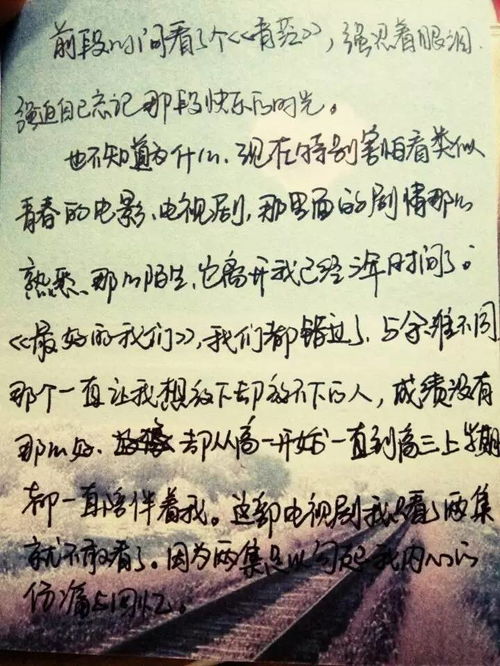 前段时间看了个《《青芒》》,强忍着眼泪
强迫自己忘记那段快乐的时光。
也不知道为什么、现在特别害怕看类似
青春的电影、电视剧,那里面的剧情那么
熟悉、那么陌生,它离开我已经半年时间了。
《《最好的我们》》,我们都错过了、与余淮不同
那个一直让我想放下却放不下的人,成绩没有
那么好、却从高一开始一直到高三上学期
都一直陪伴着我。这部电视剧我只看了两集
就不敢看了。因为两集足以勾起我内心的
伤痛与回忆。